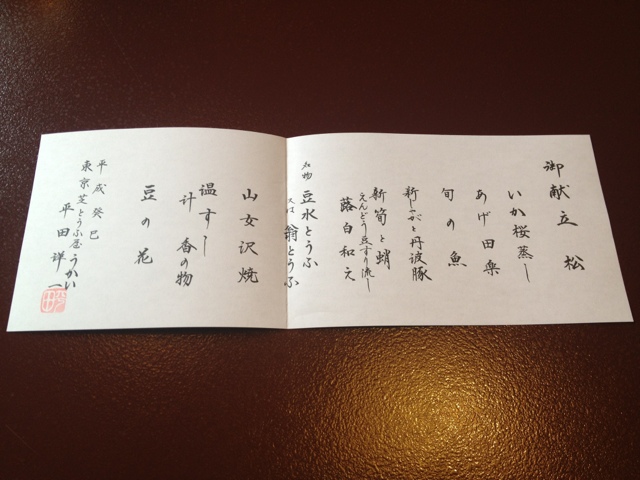 御献立 松
いか桜蒸し
あげ田楽
旬の魚
新じゃがと丹波豚
新筍と蛸
えんどう豆すり流し
蕗白和え
名物 豆水とうふ
又は 翁とうふ
山女沢焼
温すし
汁 香の物
豆の花
平成癸巳
東京芝とうふ屋うかい
平田祥一